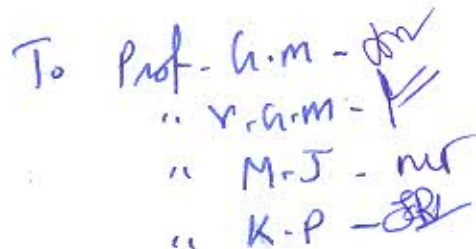 To Prof. G.M -
" V.G.M -
" M.J -
" K.P -